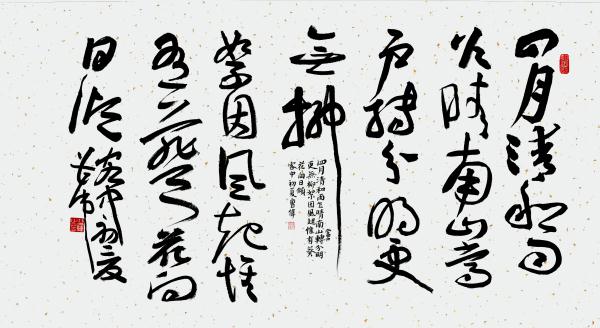 四月清和雨
乍晴南山當
戶轉分明更
無柳
絮因風起惟
有葵花向
日傾
客中初夏
四月清和雨乍晴南山轉分明
更無柳絮因風起惟有葵
花向日傾
客中初夏